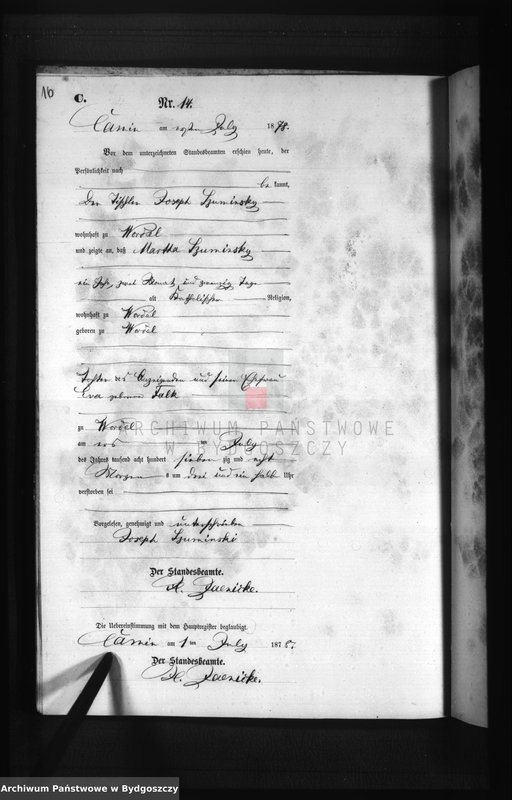 16
C.
Nr. 14.
Camin am July 1878.
Vor dem unterzeichneten Standesbeamten erschien heute, der
Persönlichkeit nach
be kannt,
Der Tischler Joseph Szuminsky
wohnhaft zu
und zeigte an, daß Martha Szuminsky
ein Jahr, zwei Monat und zwanzig Tage
alt Katholischer Religion,
wohnhaft zu
geboren zu
Tochter des Anzeigenden und seiner Ehefrau
Eva geborene Falk
zu
am ten July
des Jahres tausend acht hundert sieben zig und acht
Morgens um drei und ein halb Uhr
verstorben sei
Vorgelesen, genehmigt und unterschrieben
Joseph Szuminski
Der Standesbeamte.
Jaenicke.
Die Uebereinstimmung mit dem Hauptregister beglaubigt.
Camin am 1 ten July 1878.
Der Standesbeamte.
Jaenicke.
ARCHIWUM PAŃSTWOWE
W BYDGOSZCZY
Archiwum Państwowe w Bydgoszczy